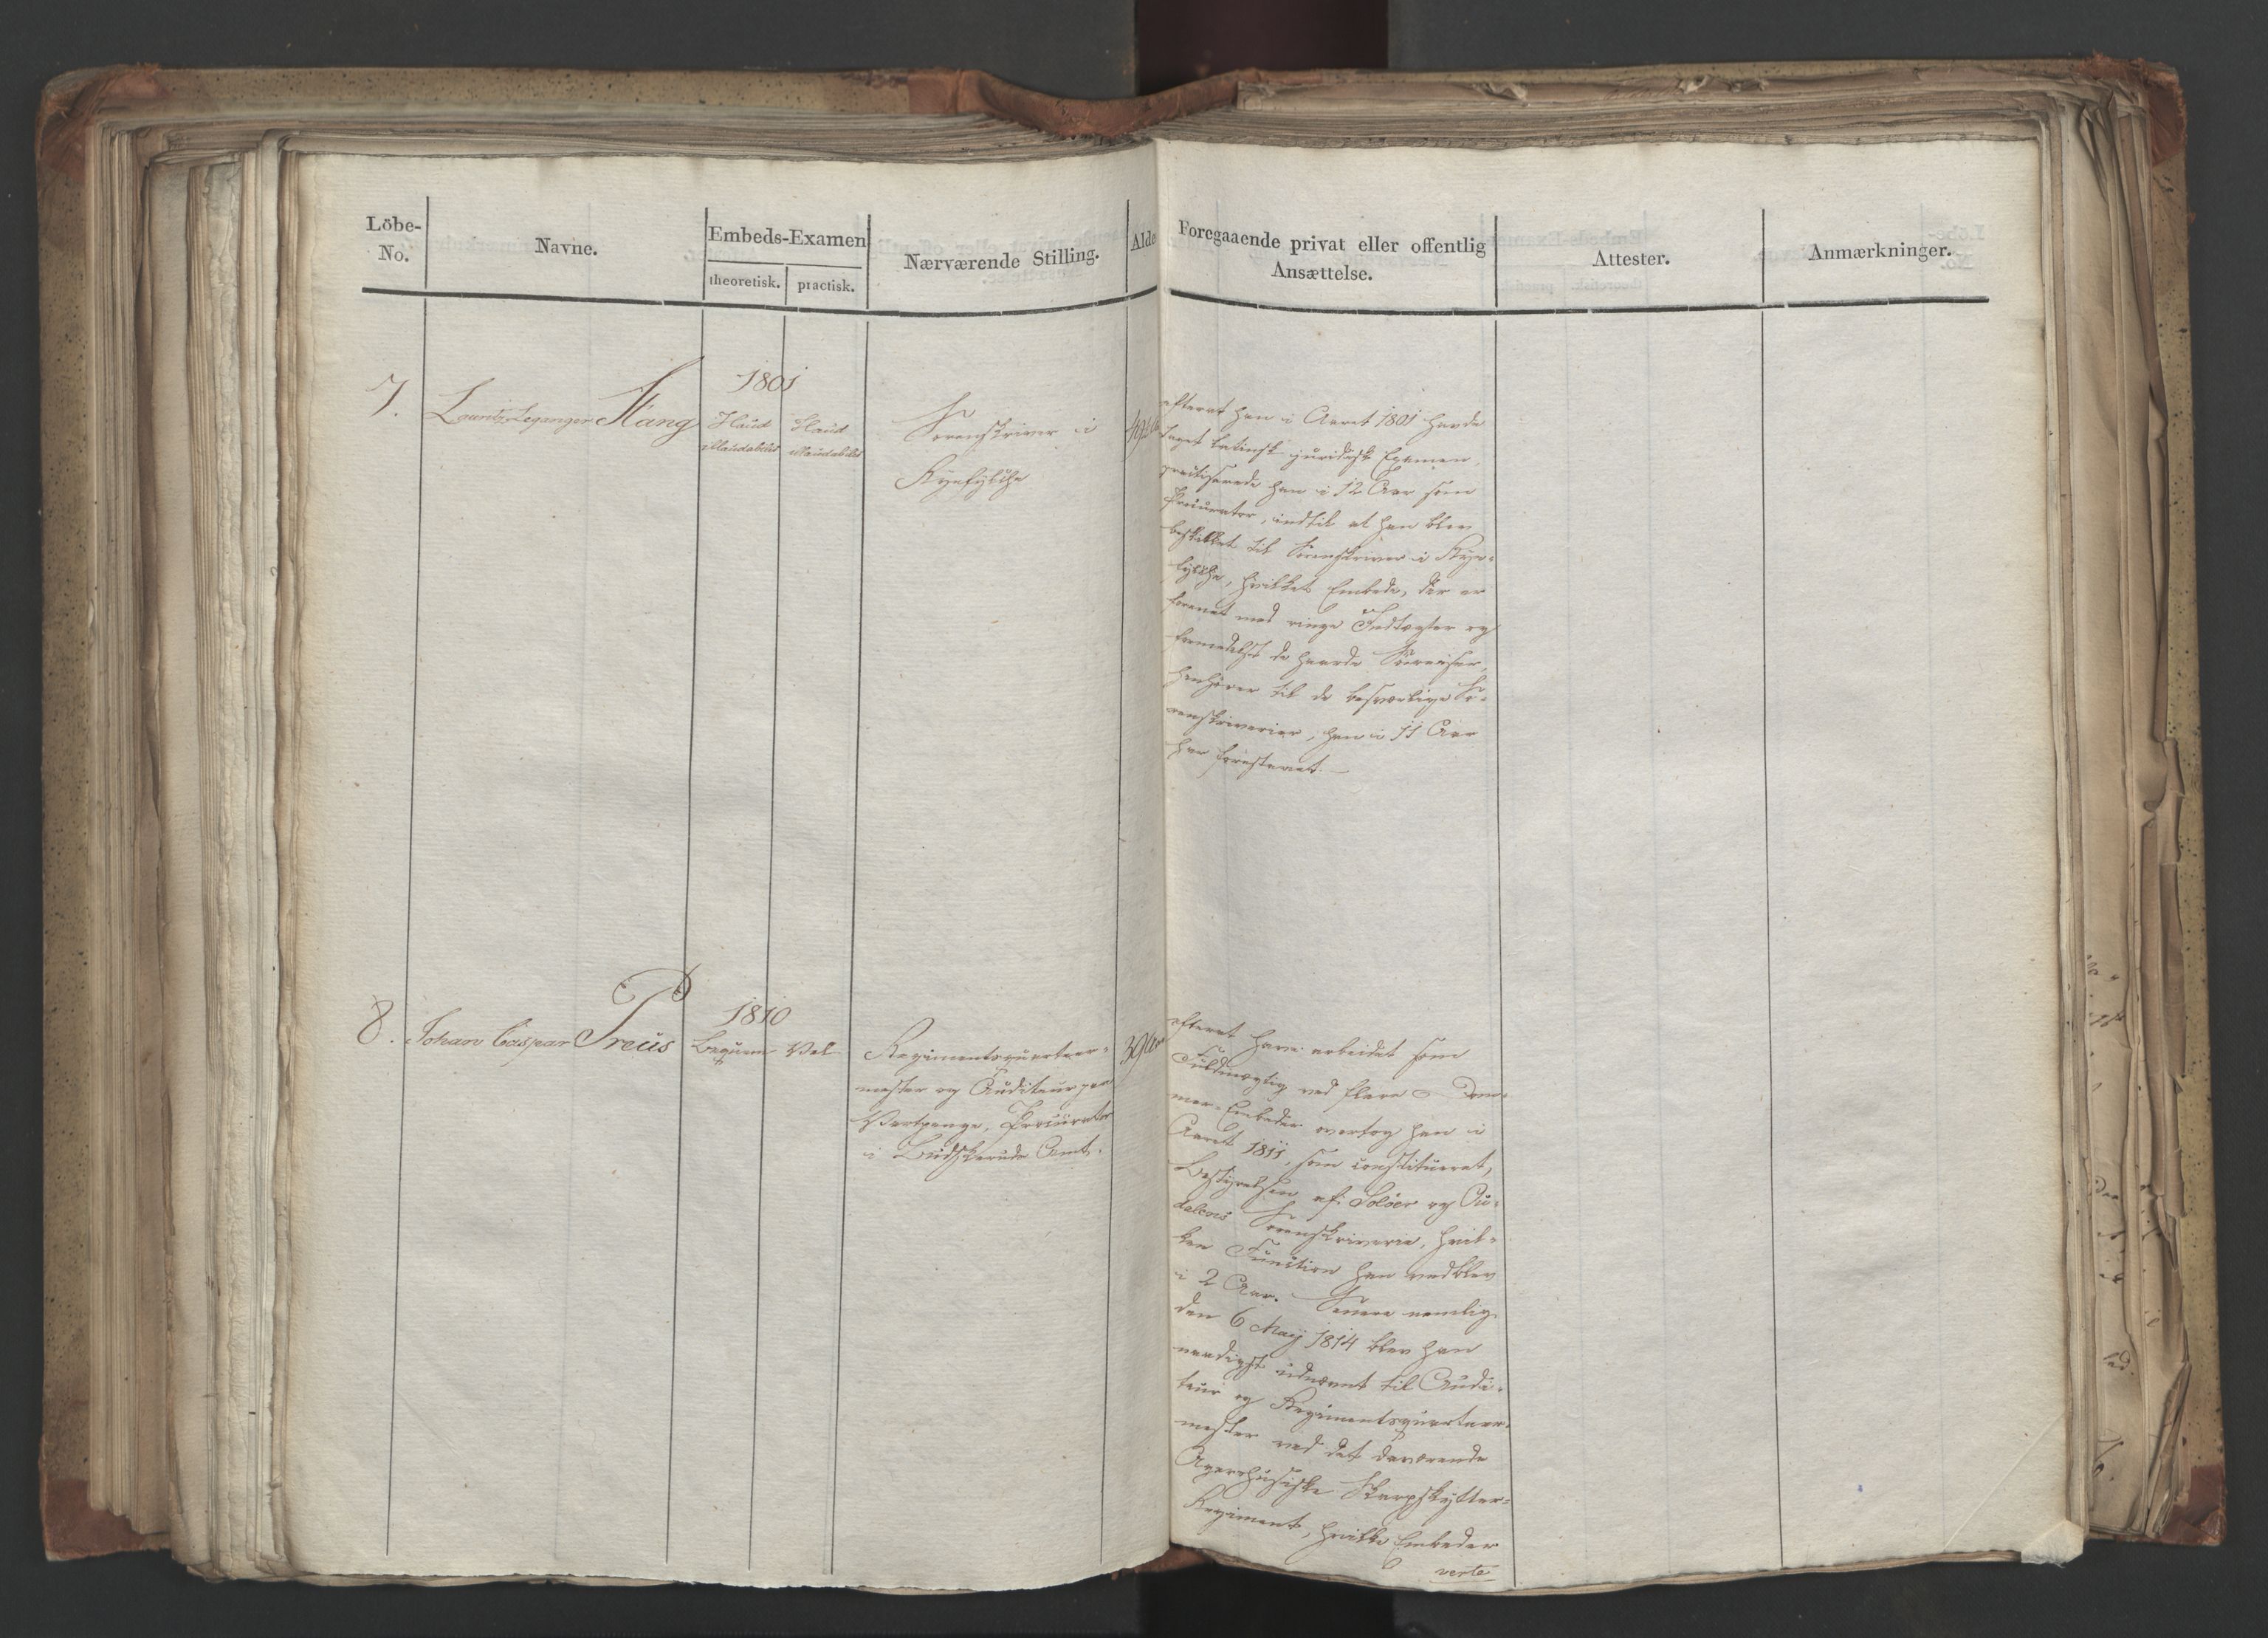 Löbe-
No.
Navne.
Embeds-Examen
theoretisk.
practisk.
Nærværende Stilling.
Alde
Foregaaende privat eller offentlig
Ansættelse.
Attester.
Anmærkninger.
7.
Lauritz Leganger Stang
1801
Haud
illaudabilis
Haud
illaudabilis
Sorenskriver i
Ryefylche
efterat han i Aaret 1801 havde
taget latinsk juridisk Examen,
practiserede han i 12 Aar som
Procurator, indtil at han blev
beskikket til Sorenskriver i Rye-
fylche, hvilket Embede, der er
forenet med ringe Indtægter og
formedelst de haarde Söereiser,
henhører til de besværlige So-
renskriverier, han i 11 Aar
har forestaaet. —
8.
Johan Caspar Preus
1810
Beqvem
Vel
Regimentsqvarteer-
mester og Auditeur paa
Vartpenge, Procurator
i Budskeruds Amt.
39 Aar
efterat have arbeidet som
Fuldmægtig ved flere Dom-
mer-Embeder overtog han i
Aaret 1811, som constitueret,
Bestyrelsen af Solöer og Ou-
dalens Sorenskriverie, hvil-
ken Function han vedblev
i 2 Aar. Senere nemlig
den 6 Maij 1814 blev han
naadigst udnævnt til Audi-
teur og Regimentsqvarteer-
mester ved det daværende
Agershusiske Skarpskytter-
Regiment, hvilke Embeder
verte